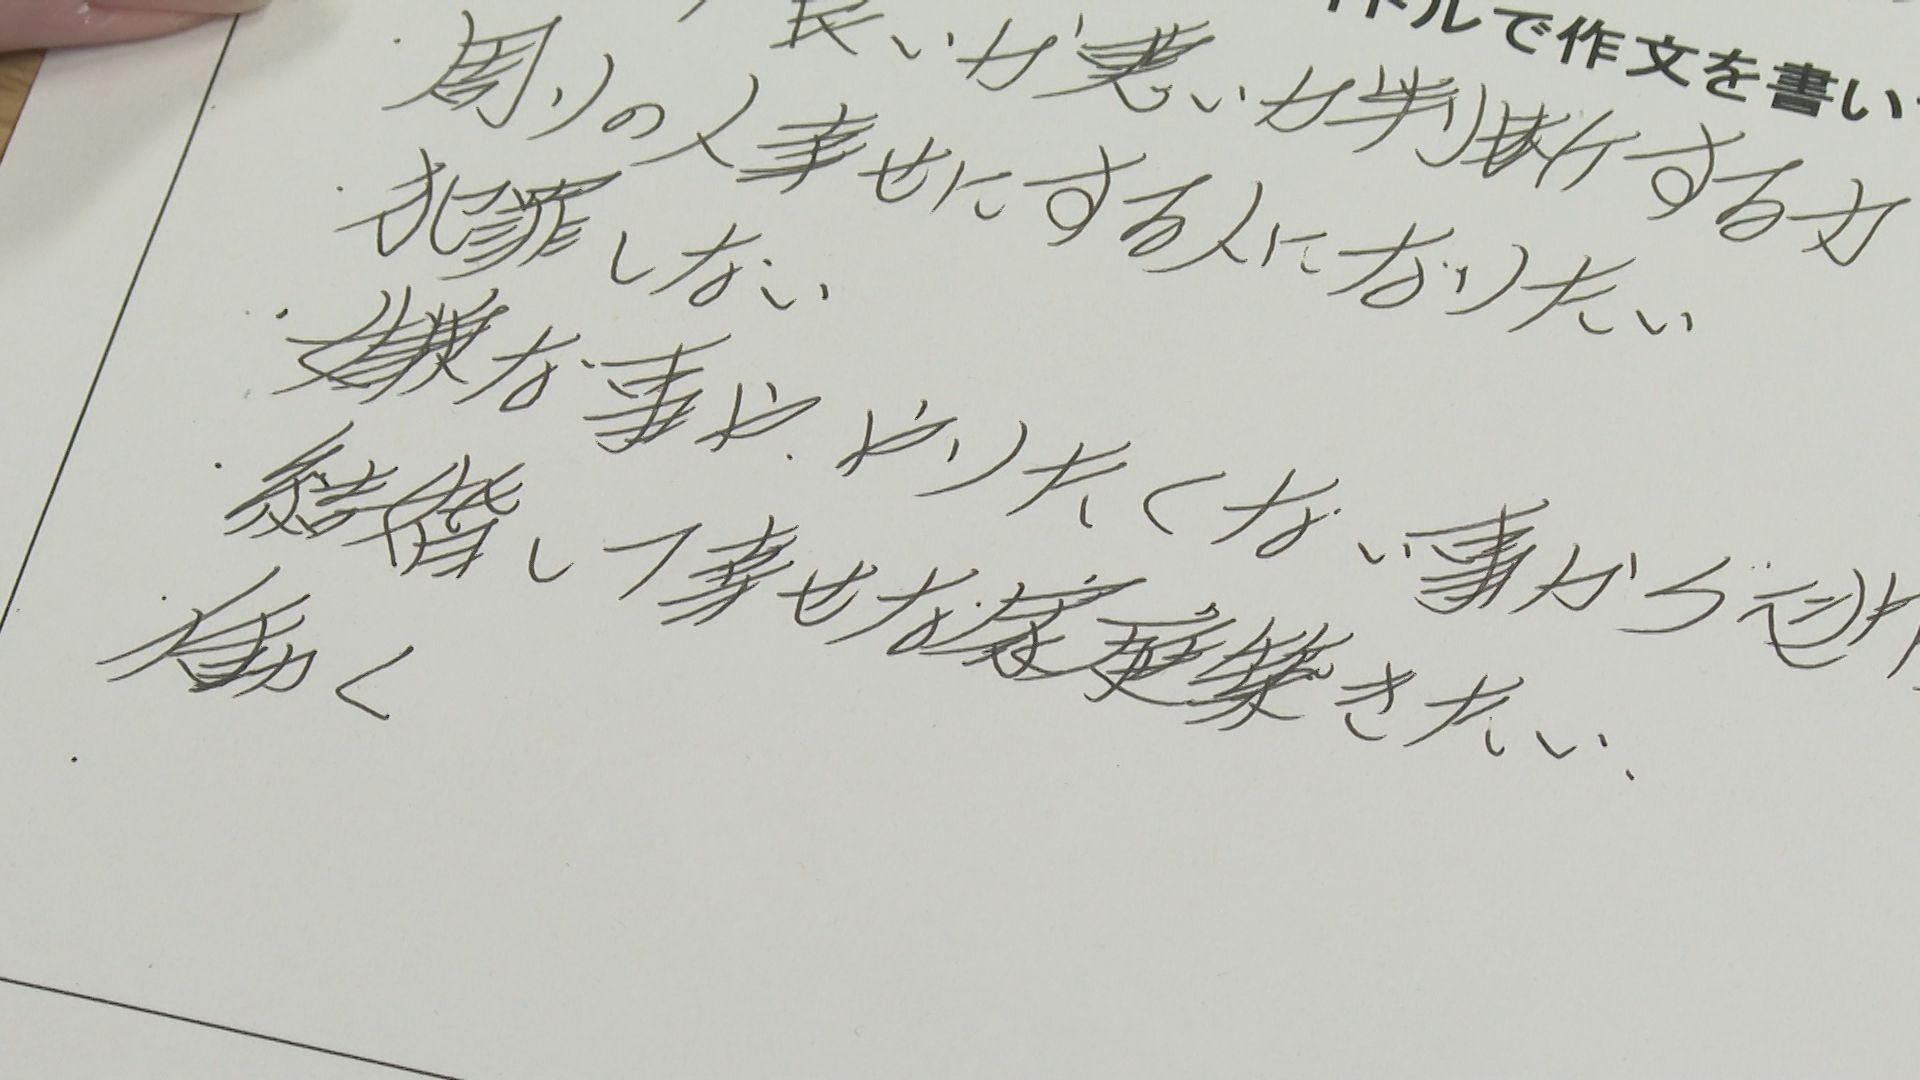 イトルで作文を書い
良いか悪いか判断する力
周りの人幸せにする人になりたい
犯罪しない
嫌な事や、やりたくない事から逃
結婚して幸せな家庭築きたい、
働く